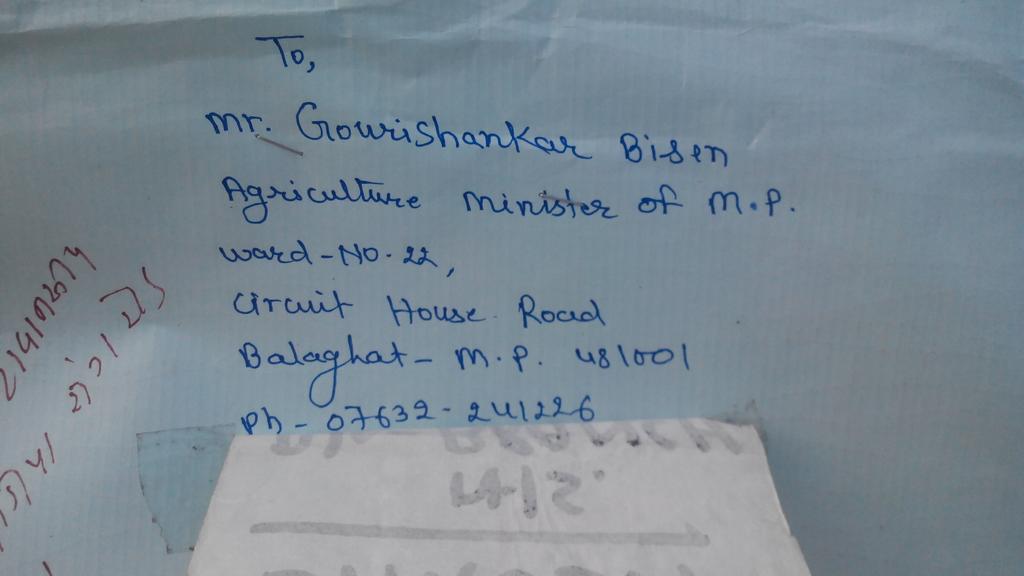 To,
Mr. Gourishankar Bisen
Agriculture Minister of M.P.
Ward-No. 22,
Circuit House Road
Balaghat- M.P. 481001
Ph - 07632-241226